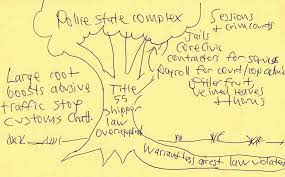 Police state complex
Sessions
& crim courts
Jails
CoreCivic
contractors for services
Payroll for court/cop admin
Bitter fruit,
veined leaves
& thorns
Large root
boosts abusive
traffic stop
customs
Title
55
shipper
law
overapplied
Warrantless arrest law violation